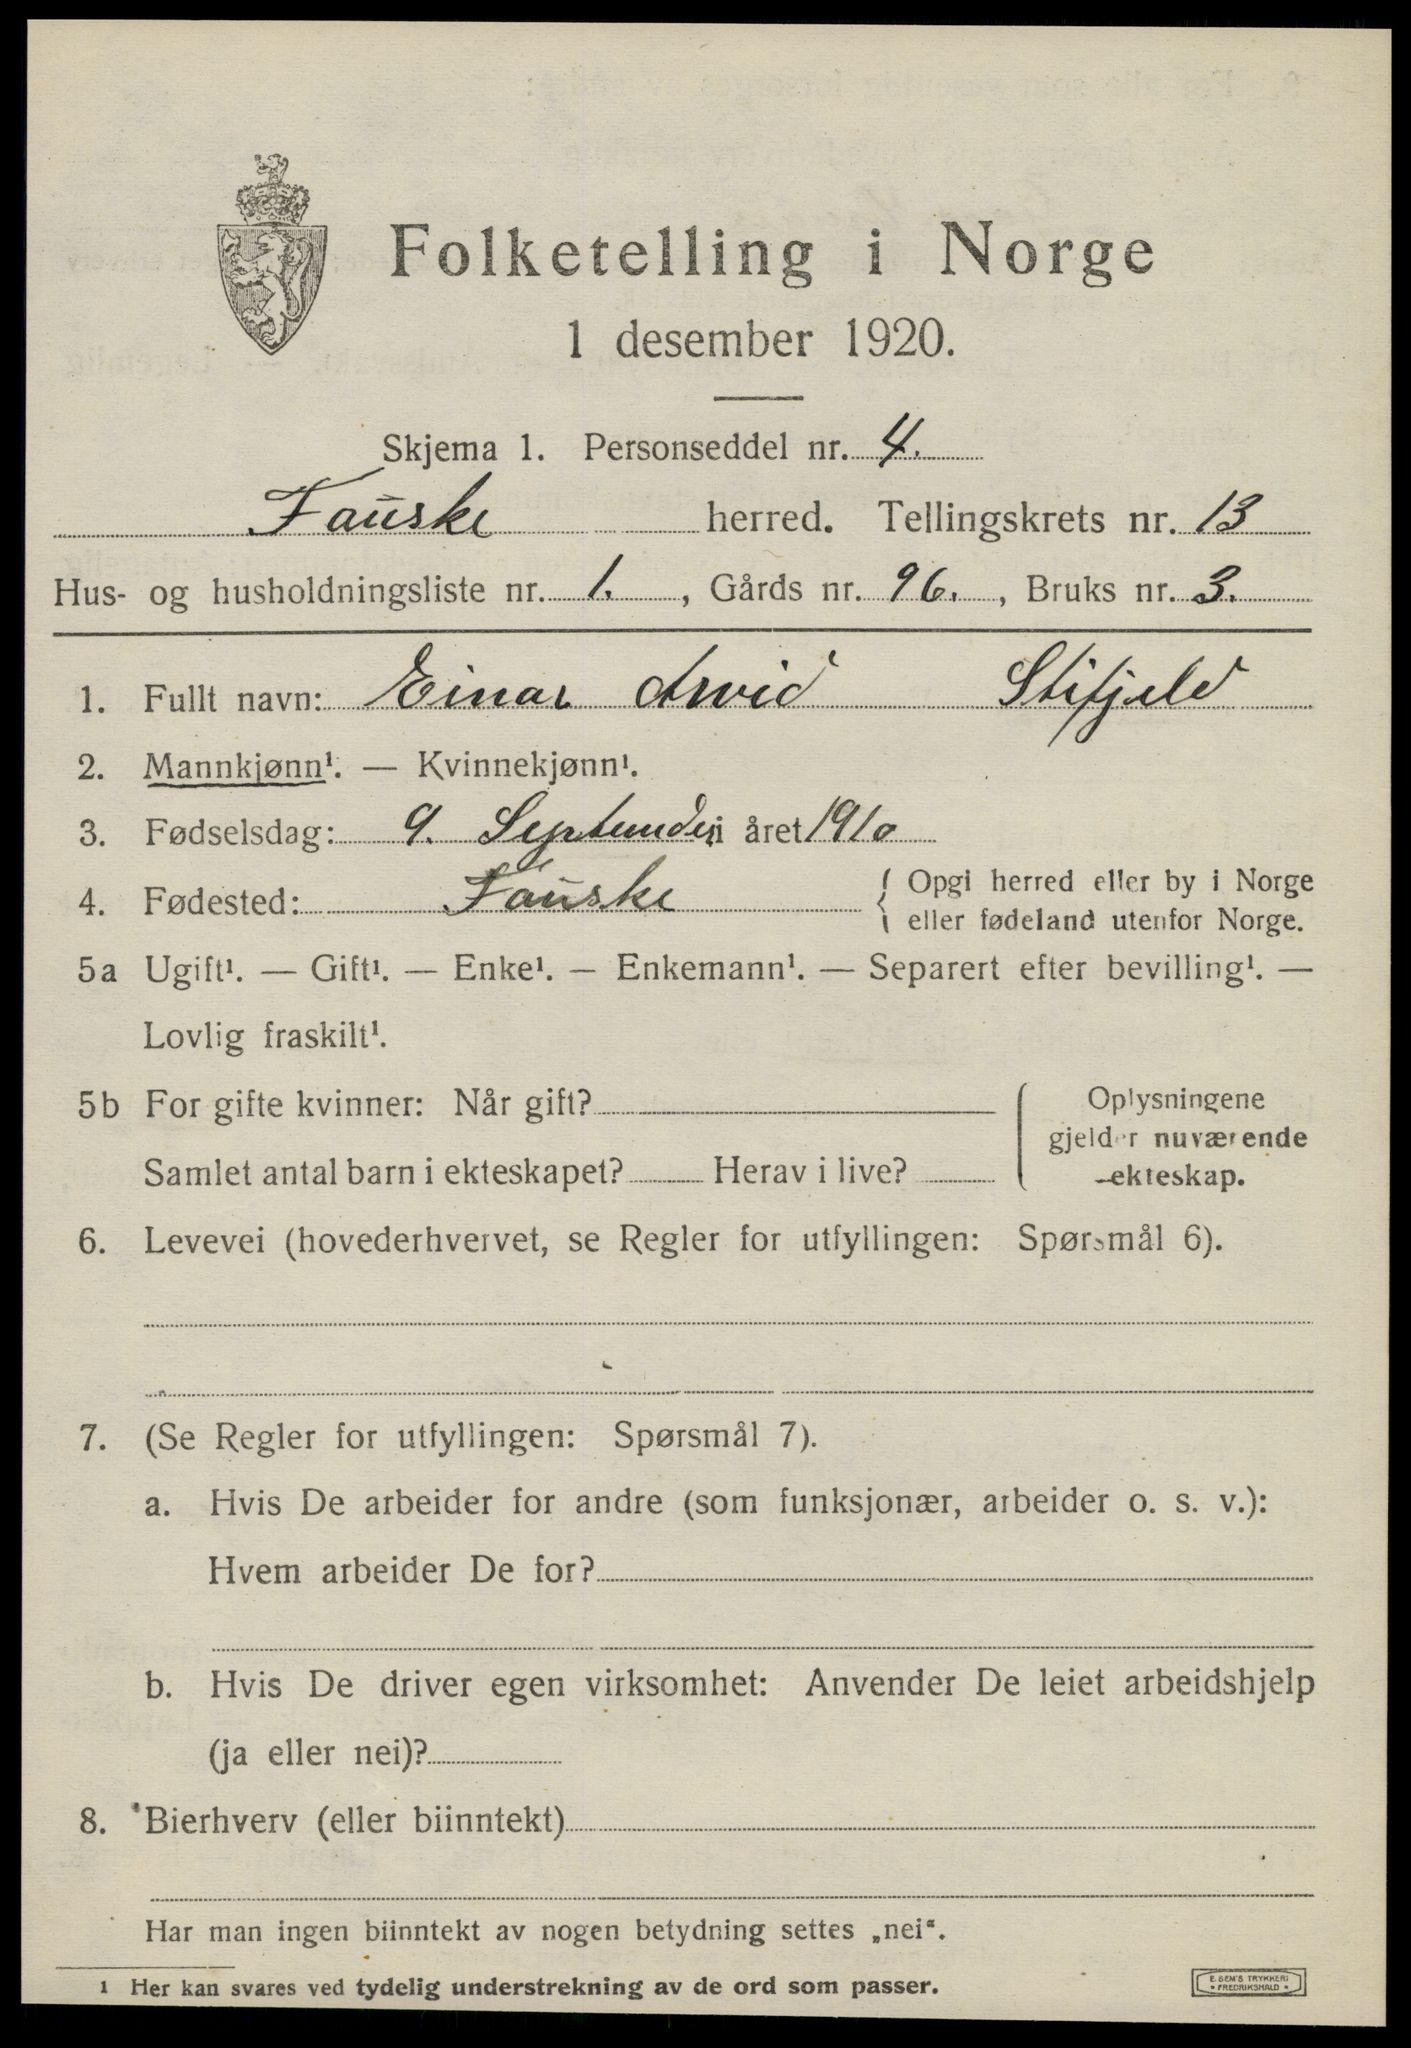 Folketelling i Norge
1 desember 1920.
Skjema 1. Personseddel nr. 4.
Fauske herred. Tellingskrets nr. 13
Hus- og husholdningsliste nr. 1., Gårds nr. 96., Bruks nr. 3.
1. Fullt navn: Einar Arvid Stifjeld
2. Mannkjønn¹. — Kvinnekjønn¹.
3. Fødselsdag: 9. September i året 1910
4. Fødested: Fauske { Opgi herred eller by i Norge
eller fødeland utenfor Norge.
5a Ugift¹. — Gift¹. — Enke¹. — Enkemann¹. — Separert efter bevilling¹. —
Lovlig fraskilt¹.
5b For gifte kvinner: Når gift?
Samlet antal barn i ekteskapet? Herav i live?
Oplysningene
gjelder nuværende
ekteskap.
6. Levevei (hovederhvervet, se Regler for utfyllingen: Spørsmål 6).
7. (Se Regler for utfyllingen: Spørsmål 7).
a. Hvis De arbeider for andre (som funksjonær, arbeider o. s. v.):
Hvem arbeider De for?
b. Hvis De driver egen virksomhet: Anvender De leiet arbeidshjelp
(ja eller nei)?
8. Bierhverv (eller biinntekt)
Har man ingen biinntekt av nogen betydning settes „nei".
1 Her kan svares ved tydelig understrekning av de ord som passer.
E. SEM'S TRYKKERI
FREDRIKSHALD